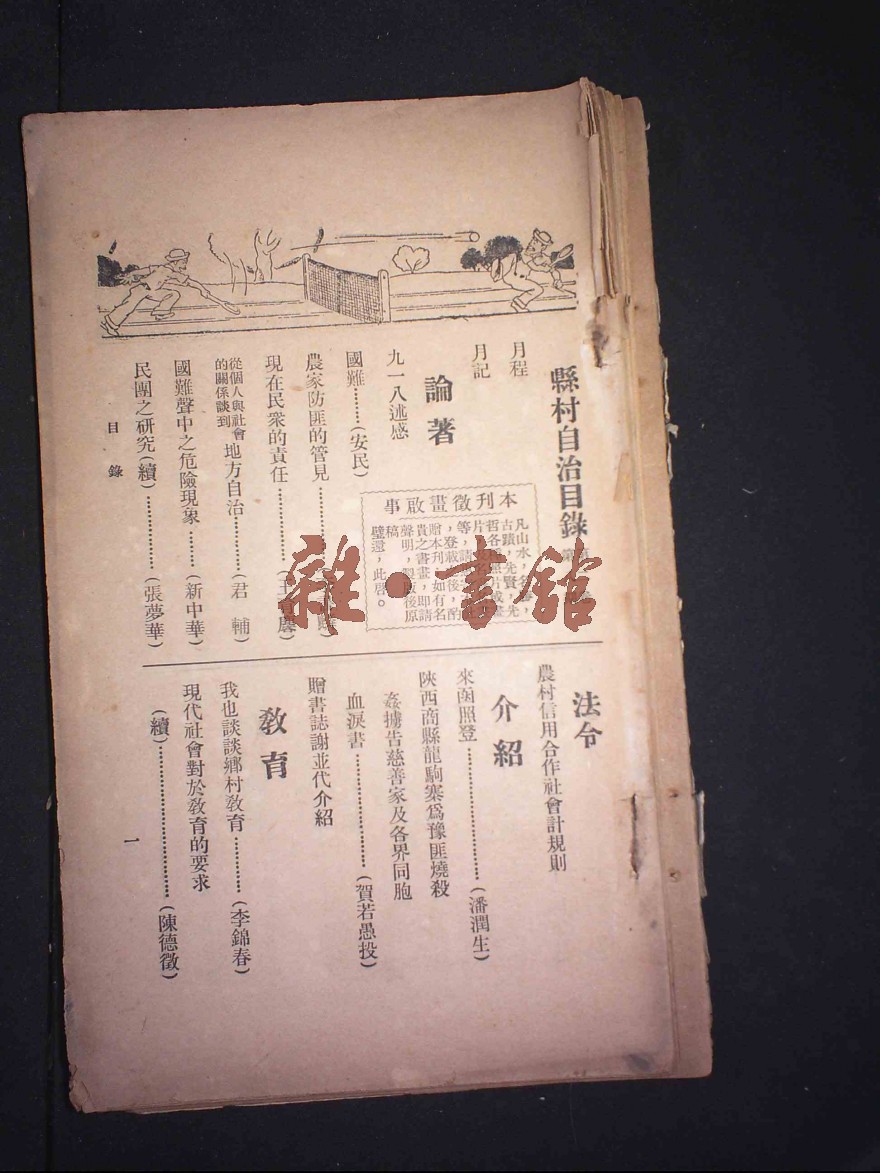 縣村自治目錄
第
月程
月記
論著
九一八述感
國難………(安民)
農家防匪的管見
現在民衆的責任
從個人與社會的關係談到地方自治………(君輔)
國難聲中之危險現象………(新中華)
民團之研究(續)………(張夢華)
本刊徵畫啟事
凡山水,
古蹟,先賢,先
哲各
片
等,請
,登載後,酌
贈本刊,如有名
貴之書畫,卽請
聲明,製版後原
稿璧還,此啓。
法令
農村信用合作社會計規則
介紹
來函照登………(潘潤生)
陝西商縣龍駒寨爲豫匪燒殺
姦擄告慈善家及各界同胞
血淚書………(賀若愚投)
贈書誌謝並代介紹
教育
我也談談鄉村教育………(李錦春)
現代社會對於教育的要求
(續)………(陳德徵)
目錄
一
雜·書館